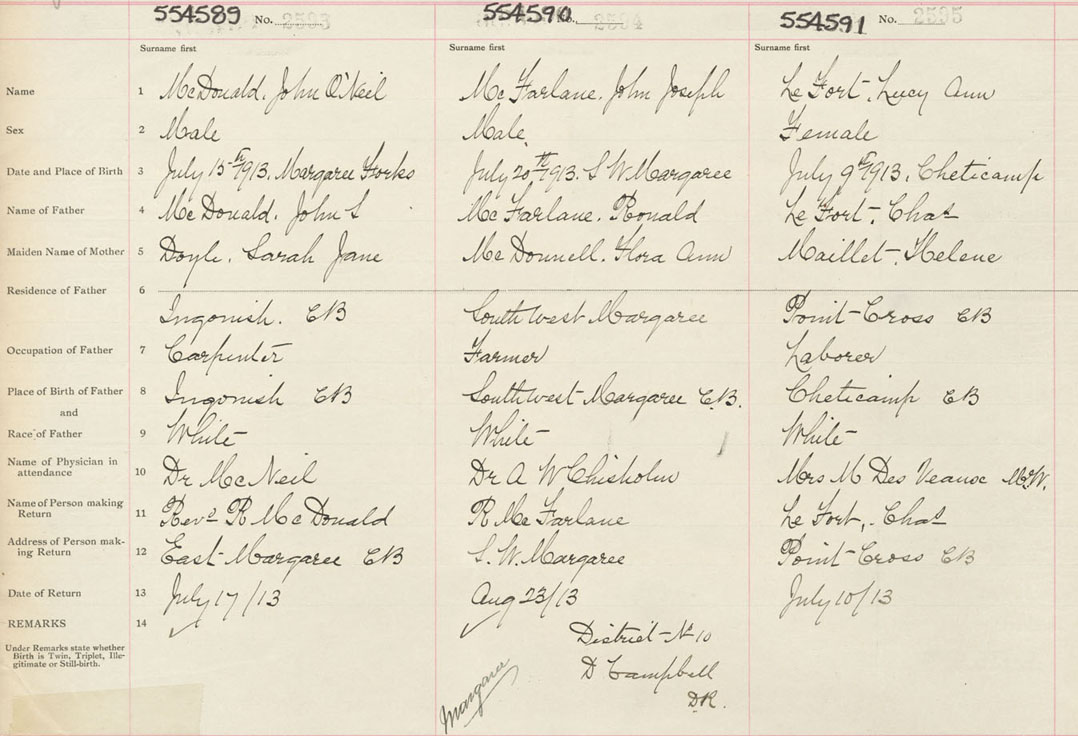 554589 No. 2503 554590 No. 2504 554591 No. 2505
Surname first Surname first Surname first
Name 1 McDonald, John O'Neil McFarlane, John Joseph Le Fort, Lucy Ann
Sex 2 Male Male Female
Date and Place of Birth 3 July 15th 1913, Margaree Forks July 20th 1913. S W Margaree July 9th 1913, Cheticamp
Name of Father 4 McDonald, John S McFarlane, Ronald Le Fort, Chas
Maiden Name of Mother 5 Doyle, Sarah Jane McDonnell, Flora Ann Maillet, Helene
Residence of Father 6 Ingonish. CB South west Margaree Point-Cross CB
Occupation of Father 7 Carpenter Farmer Laborer
Place of Birth of Father 8 Ingonish CB Southwest Margaree C.B. Cheticamp CB
and
Race of Father 9 White White White
Name of Physician in
attendance 10 Dr McNeil Dr A W Chisholm Mrs M Des Veause
Name of Person making
Return 11 Revd R McDonald R McFarlane Le Fort, Chas
Address of Person mak-
ing Return 12 East Margaree CB S. W. Margaree Point-Cross CB
Date of Return 13 July 17/13 Aug 23/13 July 10/13
REMARKS 14
Under Remarks state whether
Birth is Twin, Triplet, Ille-
gitimate or Still-birth.
District No 10
D Campbell
DR.
Margaree